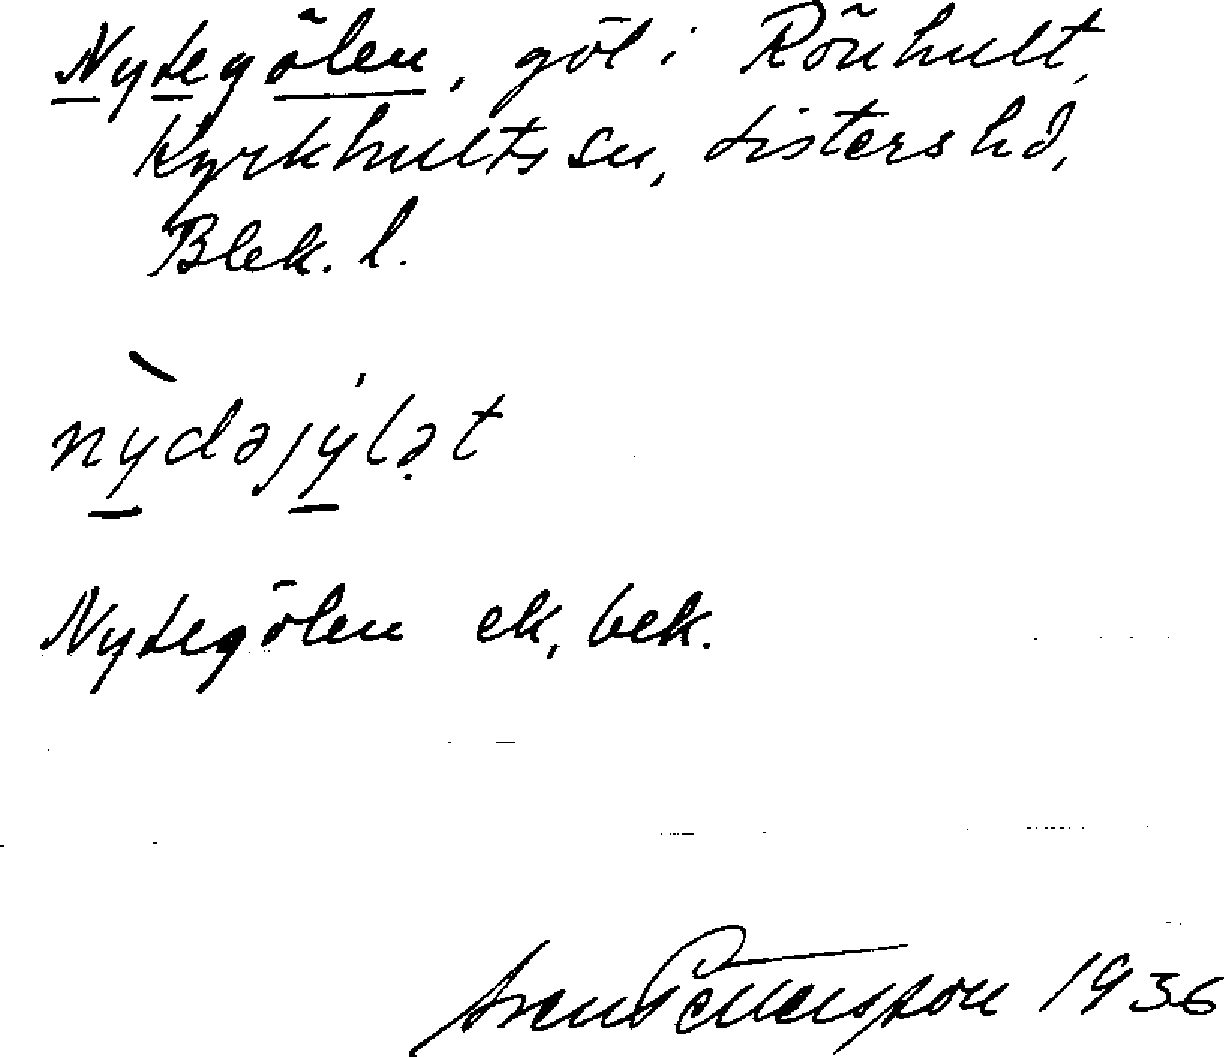 Nytegölen, göl i Rönhult,
Kyrkhults sn, Listers hd,
Blek. l.
nỳdəjýlət
Nytegölen ek, bek.
Sven Pettersson 1936